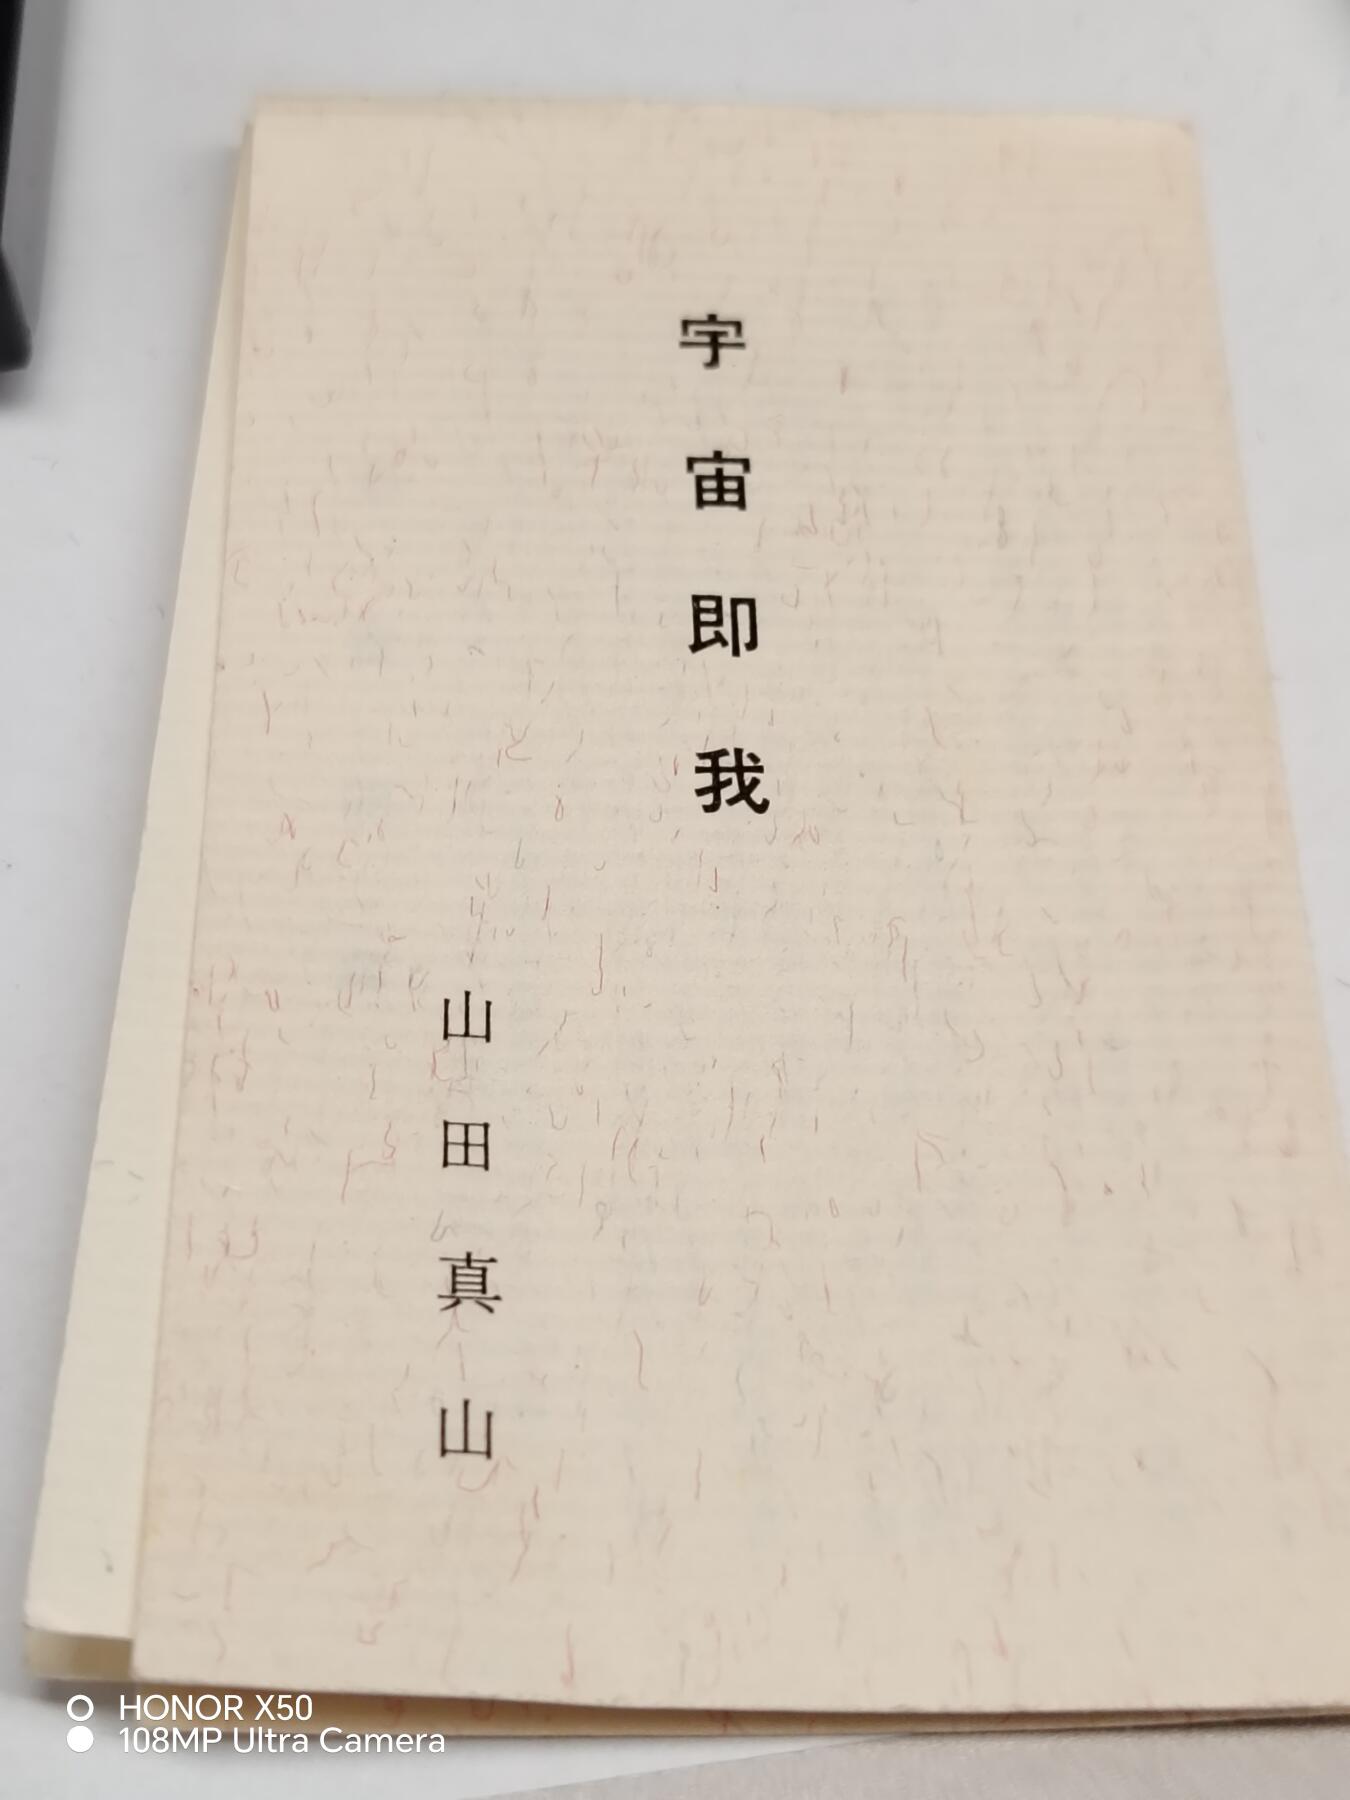 宇宙即我
山田真山
HONOR X50
108MP Ultra Camera